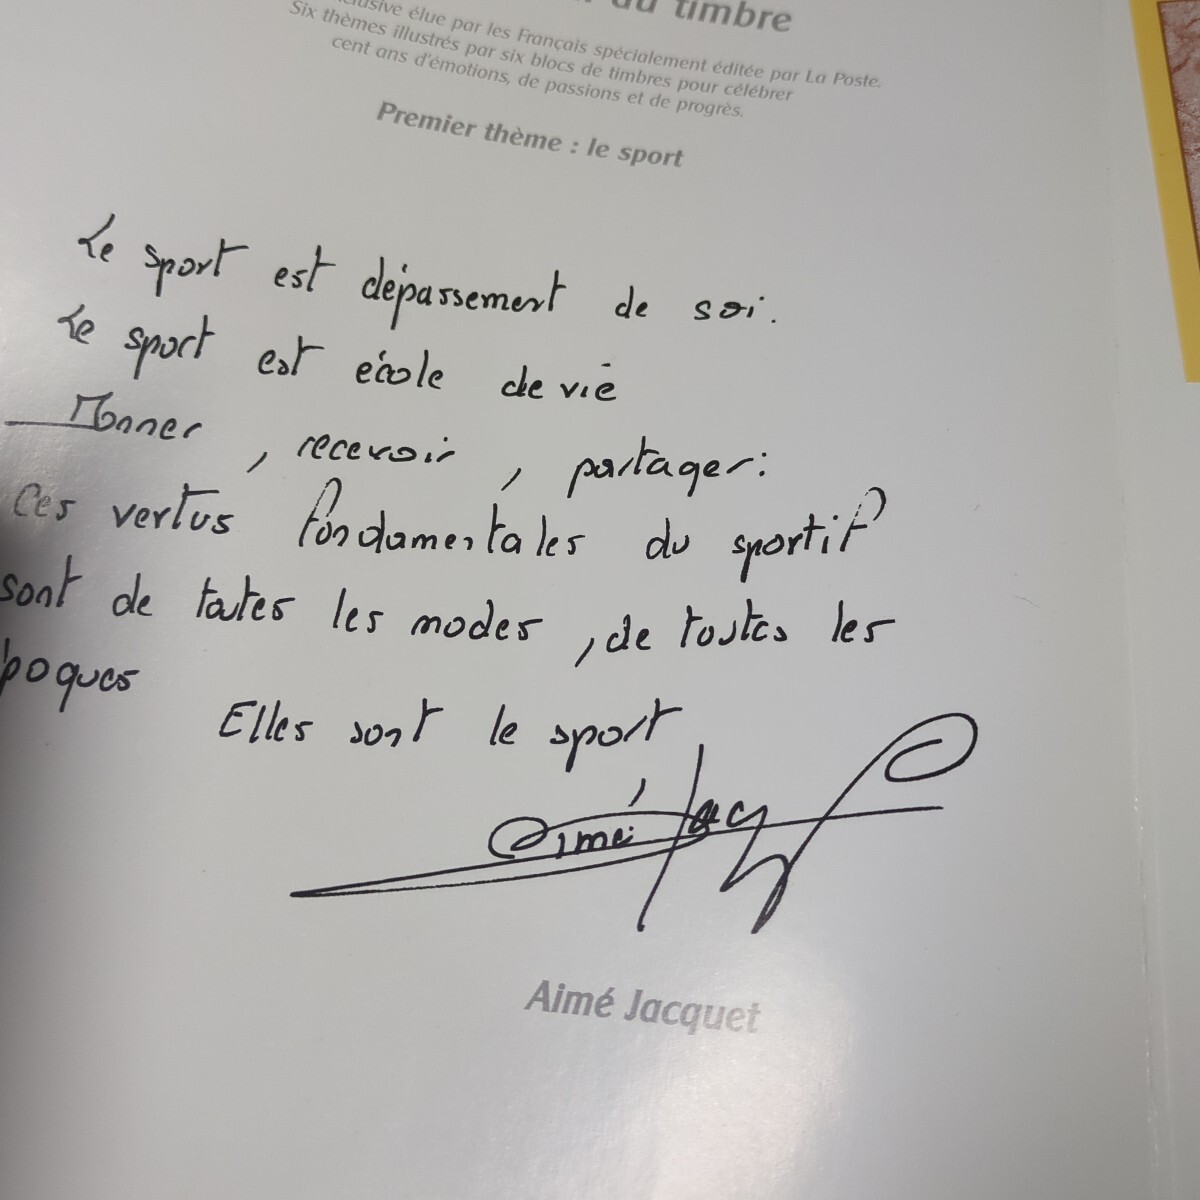 du timbre
élue par les Français spécialement éditée par La Poste.
Six thèmes illustrés par six blocs de timbres pour célébrer
cent ans d'émotions, de passions et de progrès.
Premier thème : le sport
Le sport est dépassement de soi.
Le sport est école de vie
Donner, recevoir, partager:
Ces vertus fondamentales du sportif
sont de toutes les modes, de toutes les
poques
Elles sont le sport
Aimé Jacquet
Aimé Jacquet